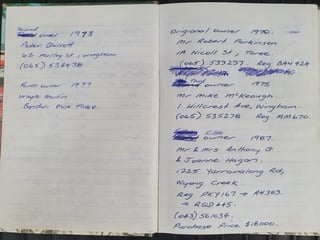 Second
owner 1973
Peter Garrett
63 Molly St, Wingham
(065) 534438
Farm owner 19
Wayne Martin
Bandon Taree.
Original Owner 1970.
Mr Robert Parkinson
1A Nicoll St, Taree.
(065) 539257 Reg BAN 424
Third
owner 1975
Mr Mike McKeough.
1 Hillcrest Ave, Wingham.
(065) 535278 Reg MM 670.
owner 1987.
Mr & Mrs Anthony G
& Joanne Hagan.
1225 Yarramalong Rd,
Wyong Creek
Reg PKY 167 → AH 383.
→ RQD 245.
(043) 561034.
Purchase Price $18000.